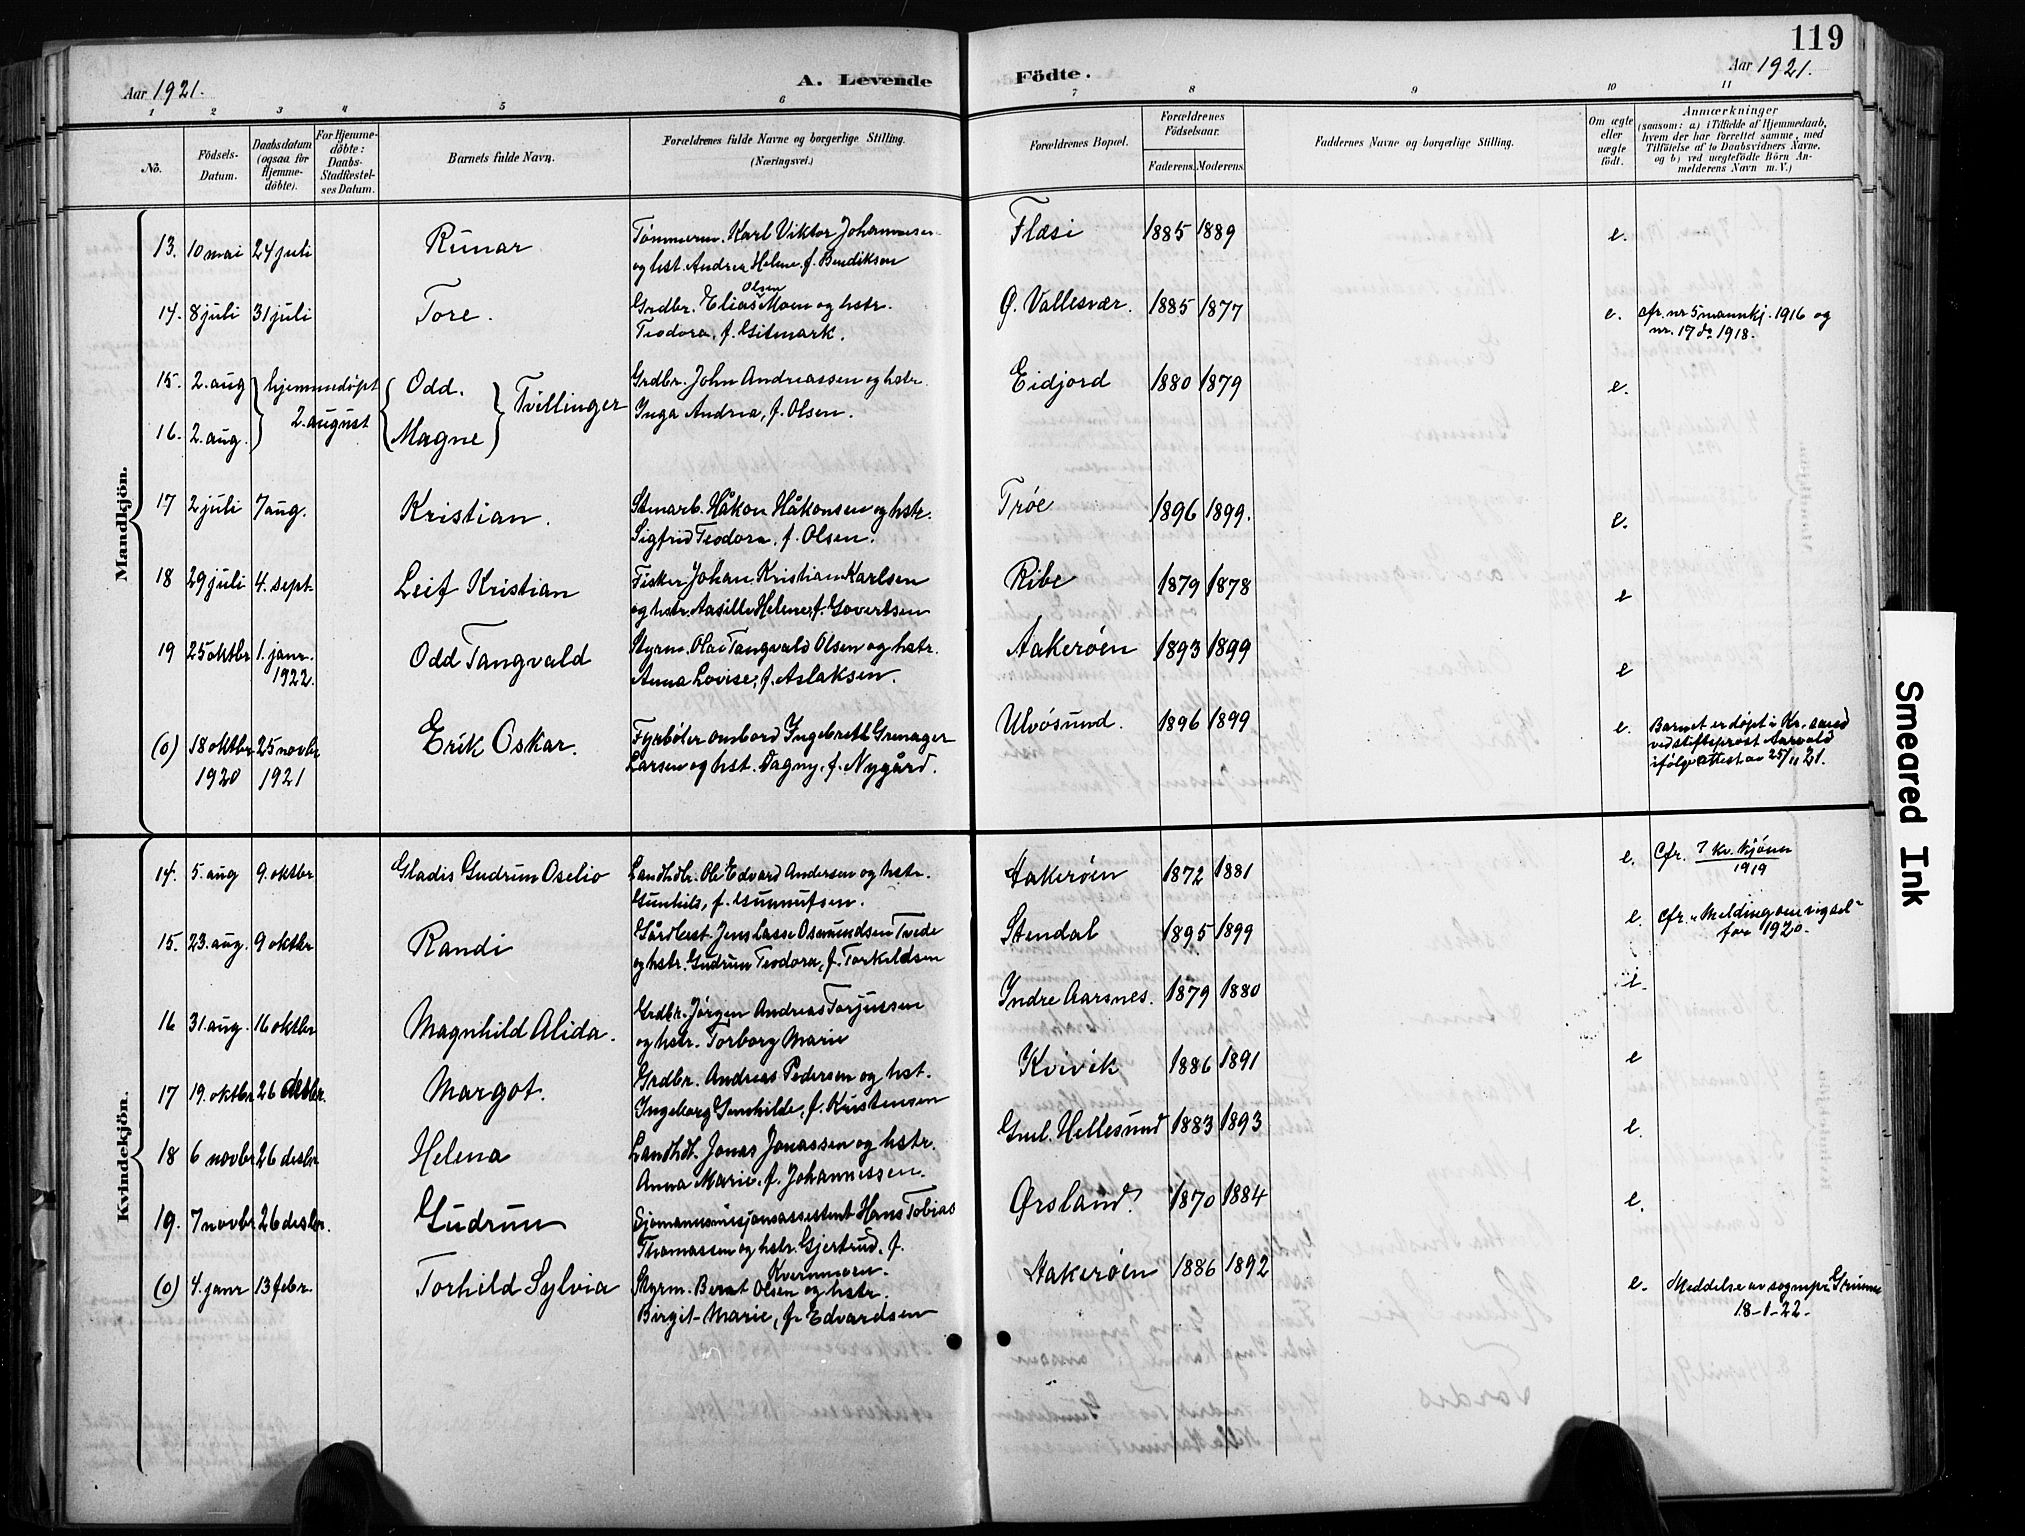 119
Aar 1921.
A. Levende Födte.
Aar 1921.
1 2 3 4 5 6 7 8 9 10 11
No.
Födsels-Datum.
Daabsdatum (ogsaa for Hjemme-döbte).
For Hjemme-döbte: Daabs-Stadfæstel-ses Datum.
Barnets fulde Navn.
Forældrenes fulde Navne og borgerlige Stilling.
(Næringsvei.)
Forældrenes Bopæl.
Forældrenes Födselsaar.
Faderens. Moderens.
Faddernes Navne og borgerlige Stilling.
Om ægte eller uægte födt.
Anmærkninger
(saasom: a) i Tilfælde af Hjemmedaab,
hvem der har forrettet samme, med
Tilföielse af to Daabsvidners Navne.
og b) ved uægtefödte Börn An-
melderens Navn m. V.)
Mandkjön.
13. 10 mai 24 juli Runar. Tømmerm. Karl Viktor Johannesen Flæsi 1885 1889 e.
og hst. Andrea Helene. f. Bendiksen
14. 8 juli 31 juli Tore. Grdbr. Elias Olsen Moen og hstr. Ø. Vallesvær. 1885 1877 e. cfr. nr 5 mannkj. 1916 og
Teodora, f. Gitmark. nr. 17 do 1918.
15. 2. aug hjemmedøpt Odd. Tvillinger Grdbr. John Andreassen og hstr. Eidjord 1880 1879 e.
16. 2. aug. 2. august Magne Inga Andrea, f. Olsen.
17 2 juli 7 aug. Kristian. Stenarb. Håkon Håkonsen og hstr. Trøe 1896 1899. e.
Sigfrid Teodora, f. Olsen.
18 29 juli 4. sept. Leif Kristian Fisker Johan Kristian Karlsen Ribe 1879 1878 e
og hstr. Aasille Helene, f. Govertsen
19 25 oktbr 1. janr. 1922. Odd Tangvald Styrm. Olai Tangvald Olsen og hstr. Aakerøen 1893 1899 e
Anna Lovise, f. Aslaksen.
(o) 18 oktbr 1920 25 novbr 1921 Erik Oskar. Fyrbøter ombord Ingebrett Grenager Ulvøsund. 1896 1899 e. Barnet er døpt i Kr.sand
Larsen og hst. Dagny, f. Nygård. ved stiftsprost Aarvold
ifølge attest av 25/11 21.
Kvindekjön.
14. 5. aug 9. oktbr Gladis Gudrun Oselio Landhdlr. Ole Edvard Andersen og hstr. Aakerøen 1872 1881 e. Cfr. 7 kv. kjønn
Gunhild, f. Gunnufsen. 1919
15. 23. aug. 9 oktbr Randi Gårdbest. Jens Lasse Osmundsen Tvede Stendal 1895 1899 e. cfr. "Melding om vigsel"
og hstr. Gudrun Teodora, f. Torkildsen for 1920.
16 31. aug. 16 oktbr Magnhild Alida. Grdbr. Jørgen Andreas Torjussen Indre Aarsnes. 1879 1880 e.
og hstr. Torborg Marie
17 19. oktbr 26 desbr. Margot. Grdbr. Andreas Pedersen og hst. Kvivik 1886 1891 e
Ingeborg Gunhilde, f. Kristensen
18 6 novbr 26 desbr Helena Landhdl. Jonas Jonassen og hstr. Gml. Hellesund 1883 1893 e.
Anna Marie. f. Johannessen.
19. 7 novbr 26 desbr. Gudrun Sjømannsmisjonsassistent Hans Tobias Ørsland. 1870 1884 e.
Thomassen og hstr. Gjertrud. f.
Kvernmoen.
(o) 4. janr 13 febr. Torhild Sylvia Styrm. Bernt Olsen og hstr. Aakerøen 1886 1892 e. Meddelse av sognepr. Grimme
Birgit Marie, f. Edvardsen 18-1-22.
Smeared Ink